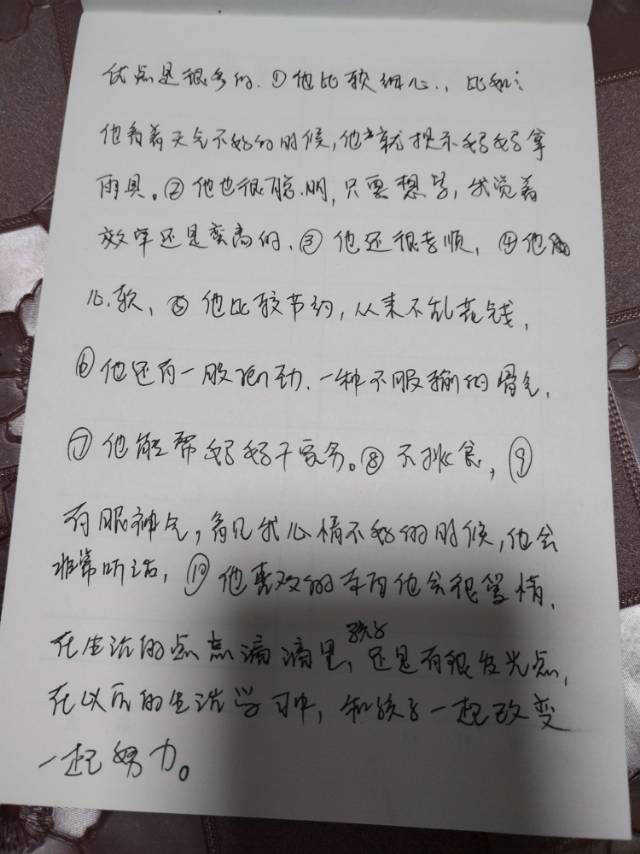 优点是很多的.①他比较细心.,比如:
他看着天气不好的时候,他就提示妈妈拿
雨具。②他也很聪明,只要想学,我觉着
效率还是蛮高的、③他还很孝顺,④他
心软,⑤他比较节约,从来不乱花钱,
⑥他还有一股 劲.一种不服输的骨气,
⑦他能帮妈妈干家务。⑧不挑食,⑨
有眼神气,看见我心情不好的时候,他会
非常听话,⑩他喜欢的东西他会很 情,
在生活的点点滴滴里,孩子还是有很 发光点,
在以后的生活学习中,和孩子一起改变
一起努力。